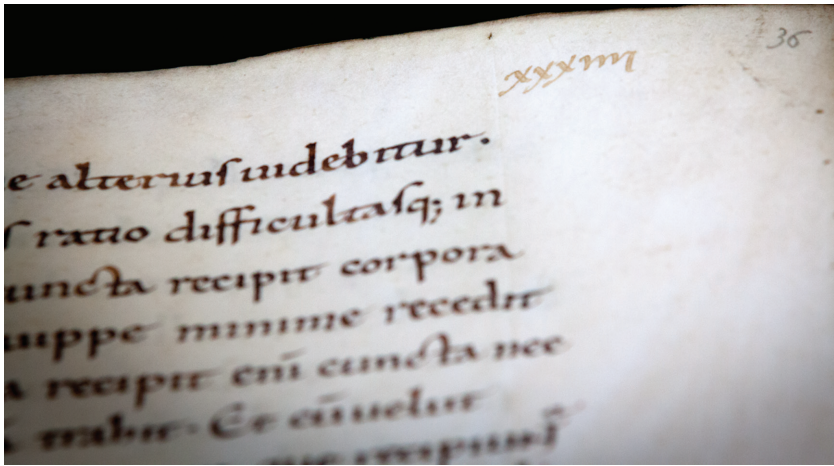 36
xxxiiii
e alterius uidebitur.
ratio difficultasq; in
cuncta recipit corpora
quippe minime recedit
recipit eni cuncta nec
trahit. Et cu uelut